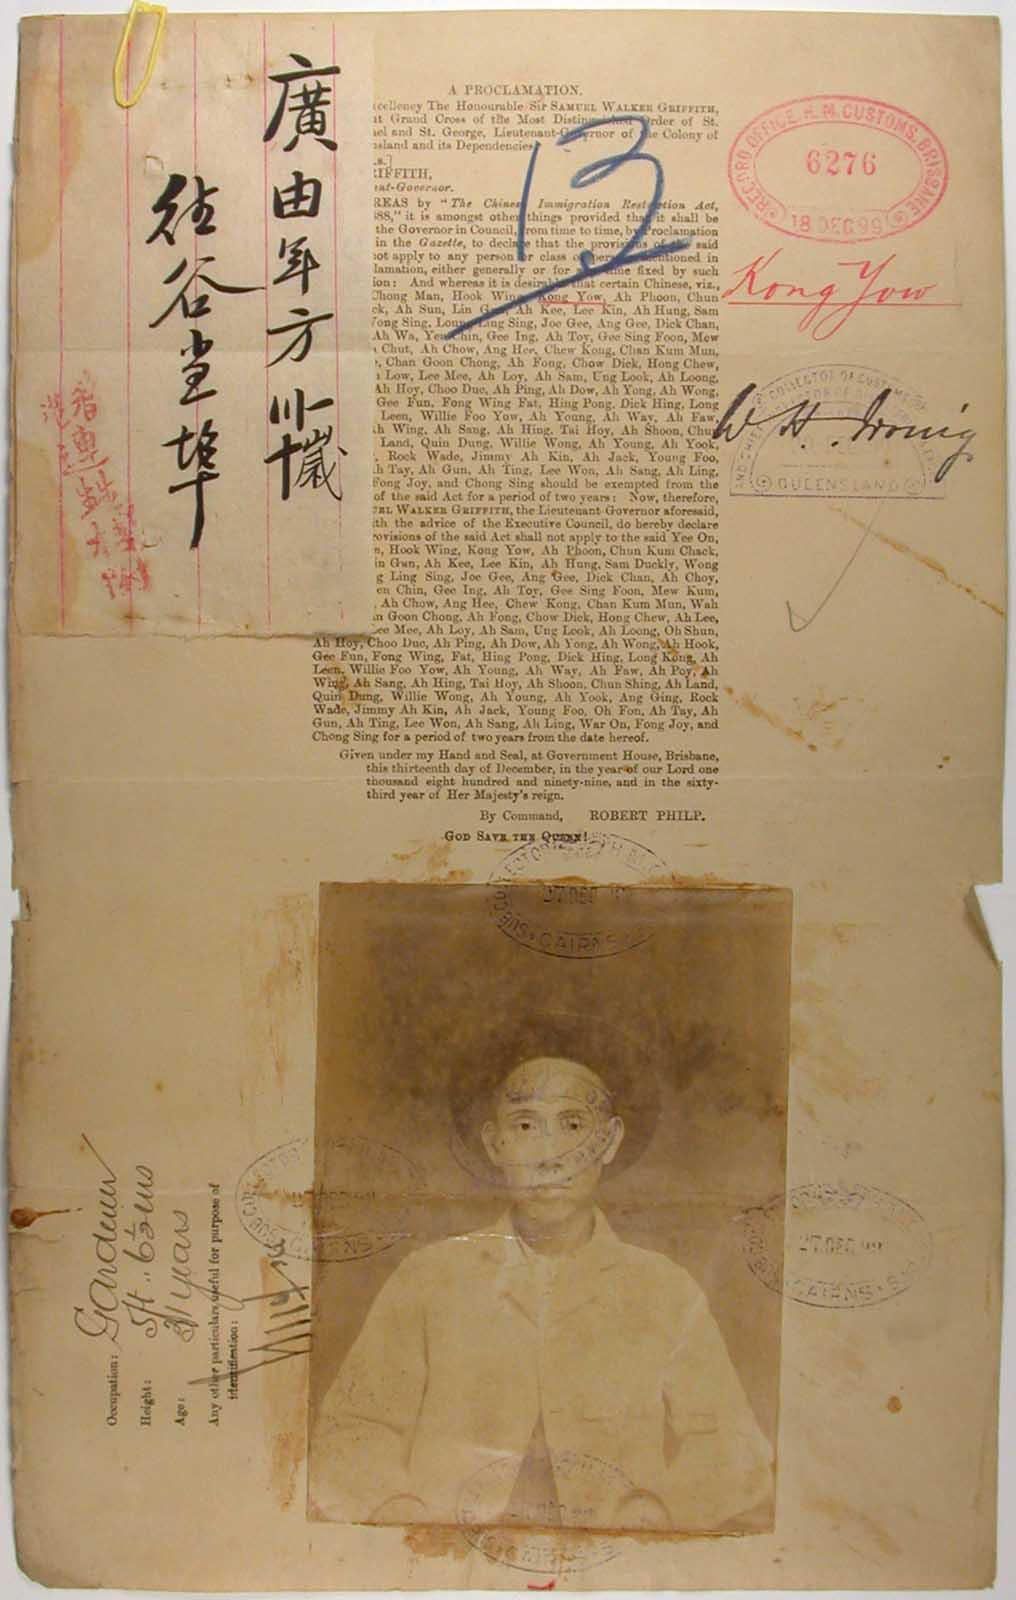 廣由年方卅一歲
往谷當埠
A PROCLAMATION.
The Honourable Sir SAMUEL WALKER GRIFFITH,
Grand Cross of the Most Distinguished Order of St.
and St. George, Lieutenant-Governor of the Colony of
and its Dependencies
by "The Chinese Immigration Restriction Act,
it is amongst other things provided that it shall be
the Governor in Council, from time to time, by Proclamation
in the Gazette, to declare that the provisions of the said
not apply to any person or class of persons mentioned in
either generally or for any time fixed by such
And whereas it is desirable that certain Chinese, viz.,
Chong Man, Hook Wing, Kong Yow, Ah Phoon, Chun
Ah Sun, Lin Gun, Ah Kee, Lee Kin, Ah Hung, Sam
Sing, Loung Ling Sing, Joe Gee, Ang Gee, Dick Chan,
Ah Wa, Yen Chin, Gee Ing, Ah Toy, Gee Sing Foon, Mew
Chut, Ah Chow, Ang Hee, Chew Kong, Chan Kum Mun,
Chan Goon Chong, Ah Fong, Chow Dick, Hong Chew,
Low, Lee Mee, Ah Loy, Ah Sam, Ung Look, Ah Loong,
Ah Hoy, Choo Duc, Ah Ping, Ah Dow, Ah Yong, Ah Wong,
Gee Fun, Fong Wing Fat, Hing Pong, Dick Hing, Long
Leen, Willie Foo Yow, Ah Young, Ah Way, Ah Faw,
Wing, Ah Sang, Ah Hing, Tai Hoy, Ah Shoon, Chun
Land, Quin Dung, Willie Wong, Ah Young, Ah Yook,
Rock Wade, Jimmy Ah Kin, Ah Jack, Young Foo,
Tay, Ah Gun, Ah Ting, Lee Won, Ah Sang, Ah Ling,
Fong Joy, and Chong Sing should be exempted from the
of the said Act for a period of two years: Now, therefore,
WALKER GRIFFITH, the Lieutenant-Governor aforesaid,
the advice of the Executive Council, do hereby declare
of the said Act shall not apply to the said Yee On,
Hook Wing, Kong Yow, Ah Phoon, Chun Kum Chack,
Gun, Ah Kee, Lee Kin, Ah Hung, Sam Duckly, Wong
Ling Sing, Joe Gee, Ang Gee, Dick Chan, Ah Choy,
Chin, Gee Ing, Ah Toy, Gee Sing Foon, Mew Kum,
Ah Chow, Ang Hee, Chew Kong, Chan Kum Mun, Wah
Goon Chong, Ah Fong, Chow Dick, Hong Chew, Ah Lee,
Lee Mee, Ah Loy, Ah Sam, Ung Look, Ah Loong, Oh Shun,
Ah Hoy, Choo Duc, Ah Ping, Ah Dow, Ah Yong, Ah Wong, Ah Hook,
Gee Fun, Fong Wing, Fat, Hing Pong, Dick Hing, Long Kong, Ah
Leen, Willie Foo Yow, Ah Young, Ah Way, Ah Faw, Ah Poy, Ah
Wing, Ah Sang, Ah Hing, Tai Hoy, Ah Shoon, Chun Shing, Ah Land,
Quin Dung, Willie Wong, Ah Young, Ah Yook, Ang Ging, Rock
Wade, Jimmy Ah Kin, Ah Jack, Young Foo, Oh Fon, Ah Tay, Ah
Gun, Ah Ting, Lee Won, Ah Sang, Ah Ling, War On, Fong Joy, and
Chong Sing for a period of two years from the date hereof.
Given under my Hand and Seal, at Government House, Brisbane,
this thirteenth day of December, in the year of our Lord one
thousand eight hundred and ninety-nine, and in the sixty-
third year of Her Majesty's reign.
By Command, ROBERT PHILP.
GOD SAVE THE QUEEN!
13
RECORD OFFICE, H. M. CUSTOMS, BRISBANE
6276
18 DEC 99
Kong Yow
COLLECTOR OF CUSTOMS
QUEENSLAND
W H Irving
27 DEC 99
CAIRNS
Occupation: Gardener
Height: 5ft. 6½ ins
Age: 31 years
Any other particulars useful for purpose of
identification:
27 DEC 99
CAIRNS